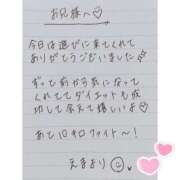 お兄様へ♡
今日は遊びに来てくれて
ありがとうございました
ずっと前から気になって
くれててダイエットも成
功して会えて嬉しいよ♡
あと10キロファイト〜!
えまより